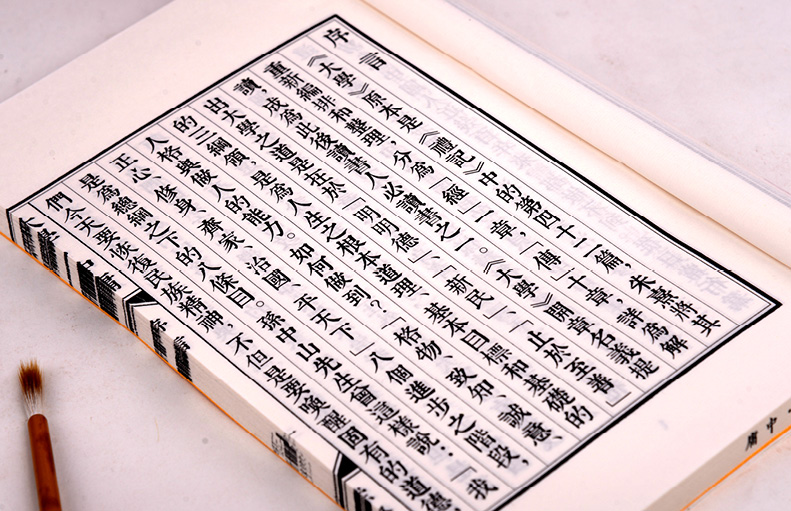 序言
《大學》原本是《禮記》中的第四十二篇,朱熹將其
重新編排和整理,分為「經」一章,「傳」十章,詳為解
讀,成為此後讀書人必讀書之一。《大學》開章名義提
出大學之道是在於「明明德」、「新民」、「止於至善」
的三綱領,是為人生之根本道理、基本目標和基礎的
人格與做人的能力。如何做到?「格物、致知、誠意、
正心、修身、齊家、治國、平天下」八個進步之階段,
是為總綱之下的八條目。孫中山先生曾這樣說:「我
們今天要恢復民族精神,不但是要喚醒固有的道德
中庸